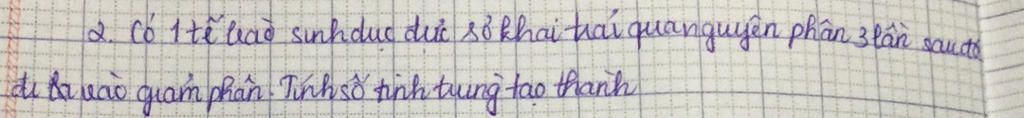 2. Có 1 tế bào sinh dục đực sơ khai trải qua nguyên phân 3 lần sau đó
đi vào giảm phân. Tính số tinh trùng tạo thành